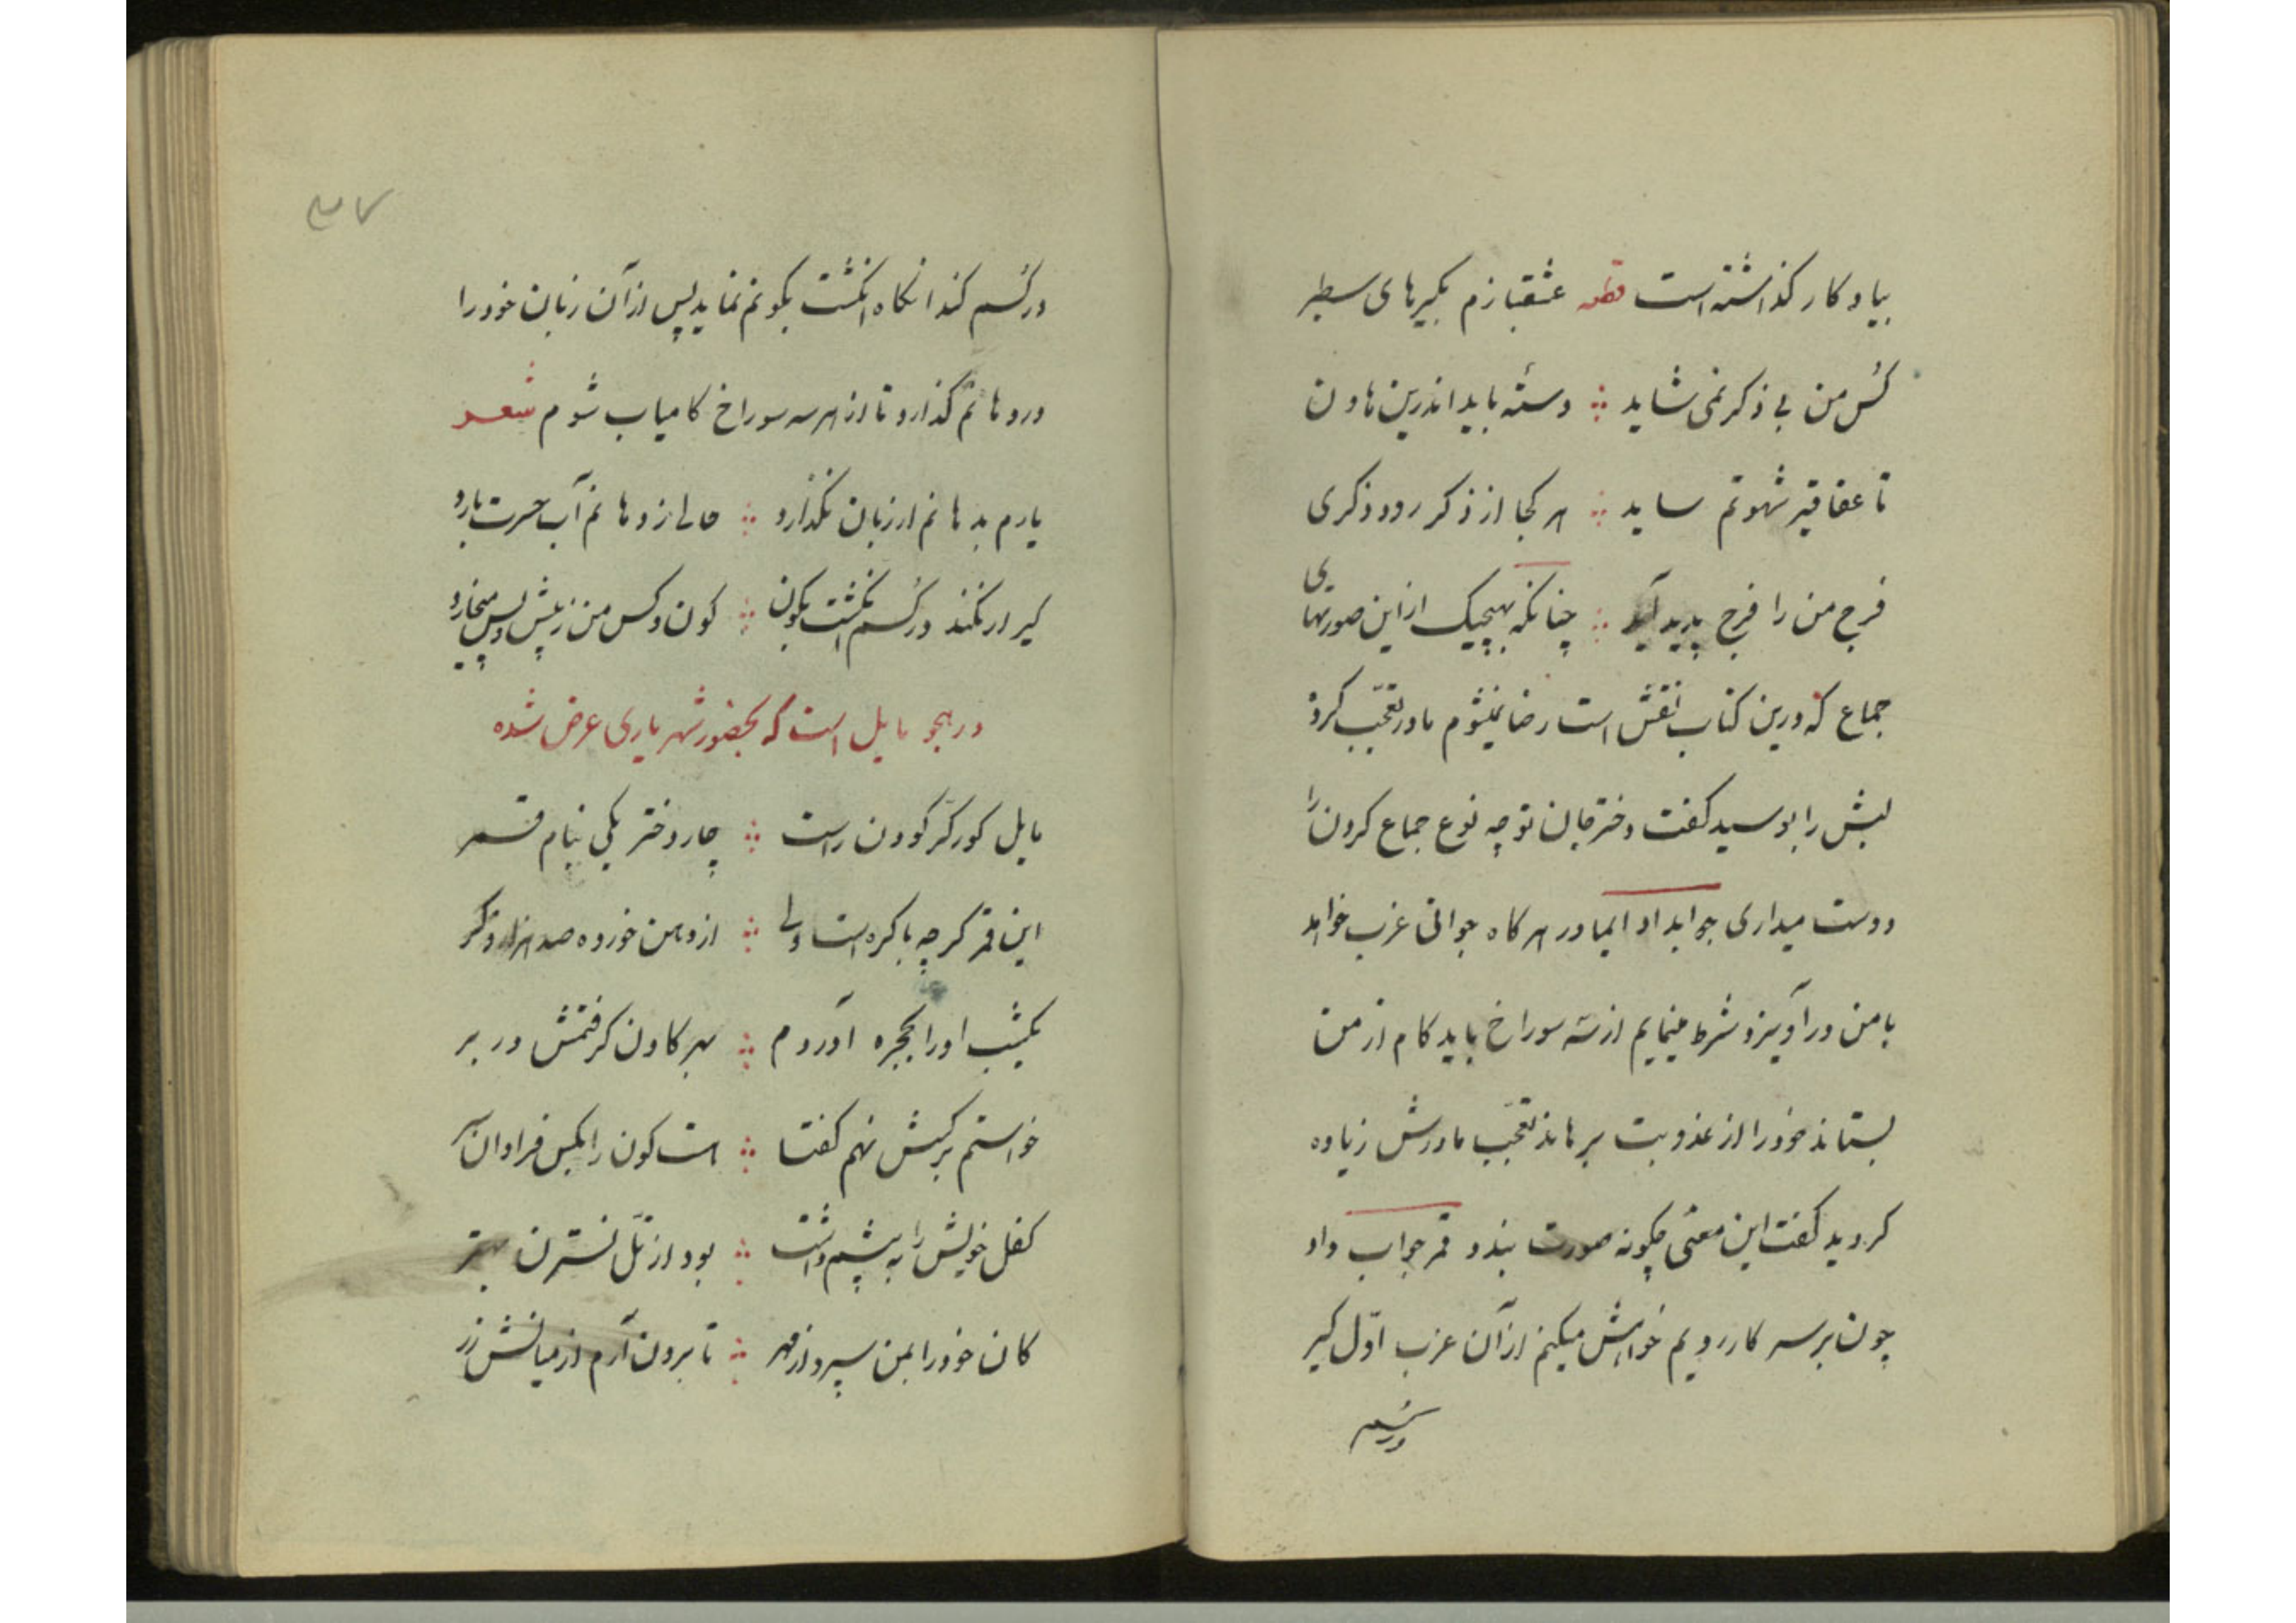 بیادکار کذاشته است قطعه عشقبازم بکیرهای سطبر
کُس من بی ذکر نمی شاید دسته باید اندرین هاون
تا عقاقیر شهوتم ساید هر کجا از ذکر رود ذکری
فرج من را فرج پدید آید چنانکه بهیچیک از این صورتهای
جماع که درین کتاب نقش است رضا نمیشوم مادر تعجّب کرد
لبش را بوسید کفت دختر جان تو چه نوع جماع کردن را
دوست میداری جوابداد ایمادر هر کاه جوانی عزب خواهد
با من در آویزد شرط مینمایم از سه سوراخ باید کام از من
بستاند خود را از عذوبت برهاند تعجّب مادرش زیاده
کردید کفت این معنی چکونه صورت بندد قمر جواب داد
چون بر سر کار رویم خواهش میکنم از آن عزب اوّل کیر
در کسم
درکُسم کند انکاه انکشت بکونم نماید پس از آن زبان خود را
در دهانم کذارد تا از هر سه سوراخ کامیاب شوم شعر
یارم بدهانم ار زبان نکذارد حالی از دهانم آب حسرت بارد
کیر ار نکند درکُسم انکشت بکون کون و کس من ز پیش و پس میخارد
در هجو مایل است که بحضور شهریاری عرض شده
مایل کور کرّ کودن راست چار دختر یکی بنام قمر
این قمر کرچه باکره است ولی از دهن خورده صد هزار ذکر
یکشب اورا بحجره آوردم بهر کادن کرفتمش در بر
خواستم بر کسش نهم کفتا هست کون را بکس فراوان سر
کفل خویش را به پیشم داشت بود از تلّ نسترن بهتر
کان خود را بمن سپرد از مهر تا برون آرم از میانش زر